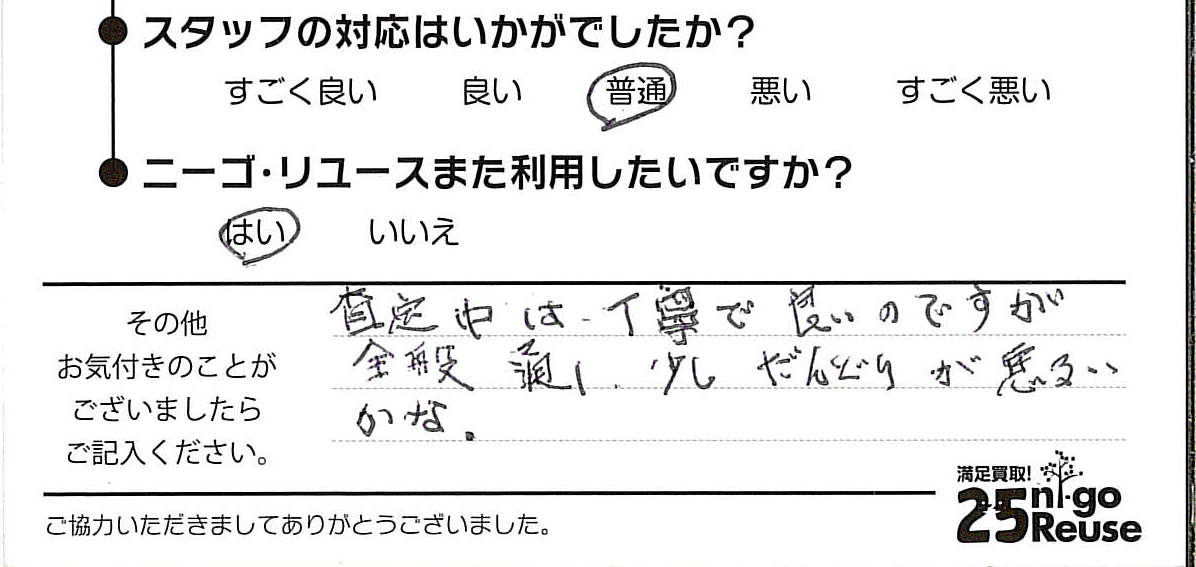 スタッフの対応はいかがでしたか?
すごく良い 良い 普通 悪い すごく悪い
ニーゴ・リユースまた利用したいですか?
はい いいえ
その他
お気付きのことが
ございましたら
ご記入ください。
査定中は丁寧で良いのですが
全般通し、少しだんどりが悪るい
かな。
満足買取!
25 ni-go
Reuse
ご協力いただきましてありがとうございました。